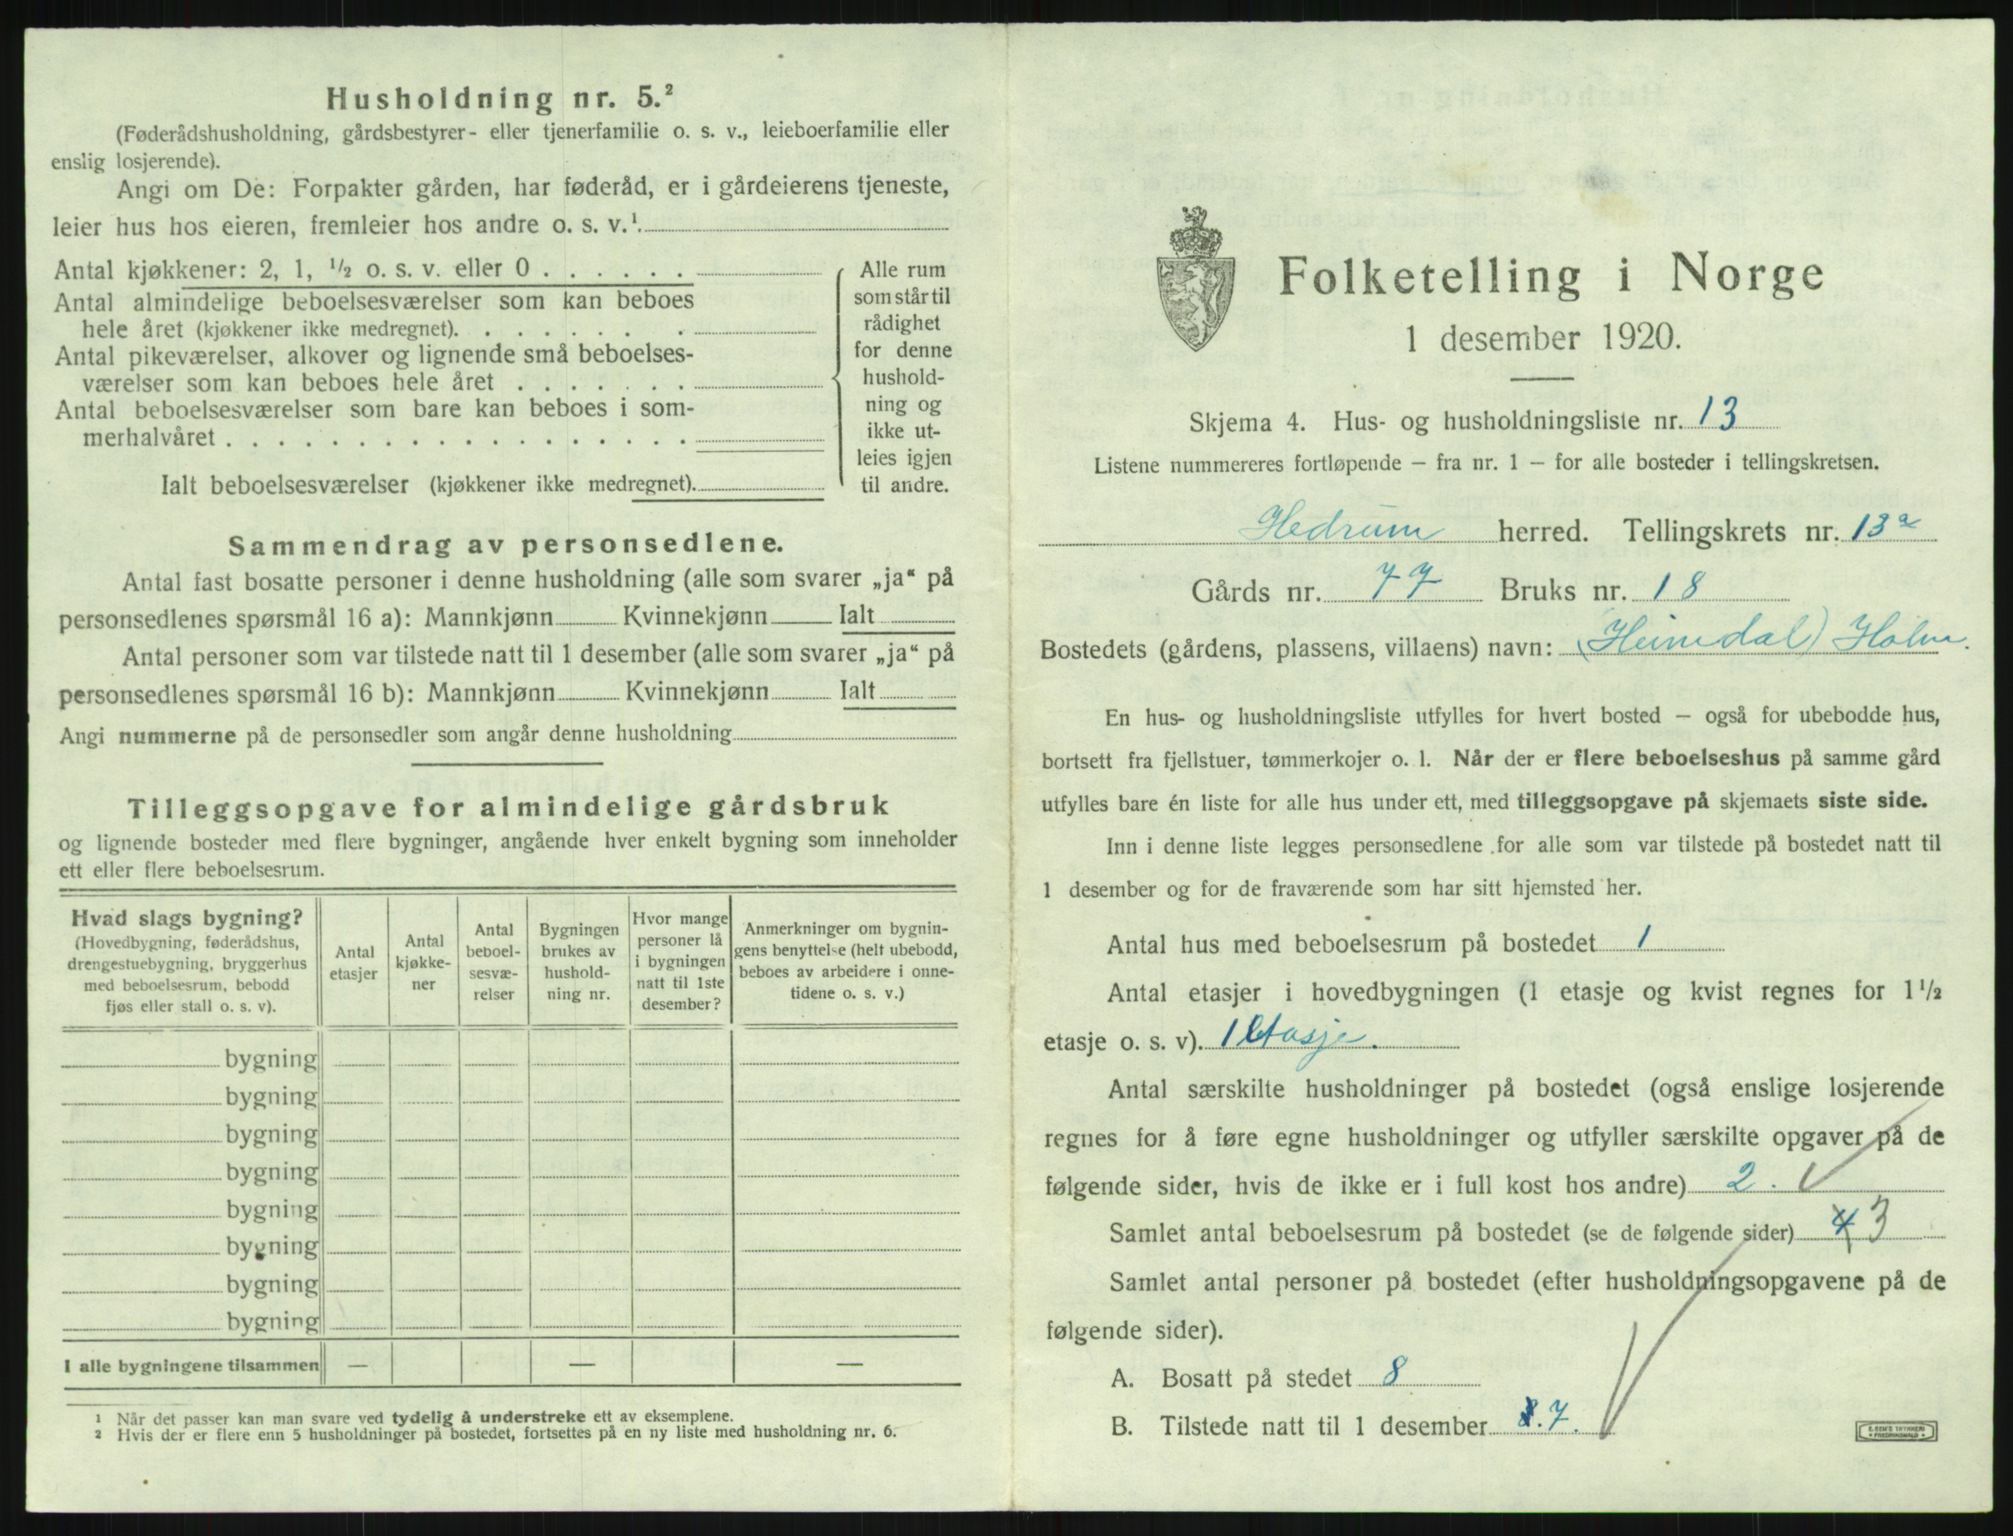 Husholdning nr. 5.²
(Føderådshusholdning, gårdsbestyrer- eller tjenerfamilie o. s. v., leieboerfamilie eller
enslig losjerende).
Angi om De: Forpakter gården, har føderåd, er i gårdeierens tjeneste,
leier hus hos eieren, fremleier hos andre o. s. v.¹.
Antal kjøkkener: 2, 1, ½ o. s. v. eller 0 . . . . . .
Antal almindelige beboelsesværelser som kan beboes
hele året (kjøkkener ikke medregnet). . . . . . . . .
Antal pikeværelser, alkover og lignende små beboelses-
værelser som kan beboes hele året . . . . . . .
Antal beboelsesværelser som bare kan beboes i som-
merhalvåret . . . . . . . . . . . . . . . . . .
Ialt beboelsesværelser (kjøkkener ikke medregnet).
Alle rum
som står til
rådighet
for denne
hushold-
ning og
ikke ut-
leies igjen
til andre.
Sammendrag av personsedlene.
Antal fast bosatte personer i denne husholdning (alle som svarer „ja“ på
personsedlenes spørsmål 16 a): Mannkjønn Kvinnekjønn Ialt
Antal personer som var tilstede natt til 1 desember (alle som svarer „ja“ på
personsedlenes spørsmål 16 b): Mannkjønn Kvinnekjønn Ialt
Angi nummerne på de personsedler som angår denne husholdning
Tilleggsopgave for almindelige gårdsbruk
og lignende bosteder med flere bygninger, angående hver enkelt bygning som inneholder
ett eller flere beboelsesrum.
Hvad slags bygning?
(Hovedbygning, føderådshus,
drengestuebygning, bryggerhus
med beboelsesrum, bebodd
fjøs eller stall o. s. v).
Antal
etasjer
Antal
kjøkke-
ner
Antal
beboel-
sesvæ-
relser
Bygningen
brukes av
hushold-
ning nr.
Hvor mange
personer lå
i bygningen
natt til 1ste
desember?
Anmerkninger om bygnin-
gens benyttelse (helt ubebodd,
beboes av arbeidere i onne-
tidene o. s. v.)
bygning
bygning
bygning
bygning
bygning
bygning
bygning
bygning
I alle bygningene tilsammen — — —
¹ Når det passer kan man svare ved tydelig å understreke ett av eksemplene.
² Hvis der er flere enn 5 husholdninger på bostedet, fortsettes på en ny liste med husholdning nr. 6.
Folketelling i Norge
1 desember 1920.
Skjema 4. Hus- og husholdningsliste nr. 13
Listene nummereres fortløpende – fra nr. 1 – for alle bosteder i tellingskretsen.
Hedrum herred. Tellingskrets nr. 13a
Gårds nr. 77 Bruks nr. 18
Bostedets (gårdens, plassens, villaens) navn: (Heimdal) Holm.
En hus- og husholdningsliste utfylles for hvert bosted – også for ubebodde hus,
bortsett fra fjellstuer, tømmerkojer o. l. Når der er flere beboelseshus på samme gård
utfylles bare én liste for alle hus under ett, med tilleggsopgave på skjemaets siste side.
Inn i denne liste legges personsedlene for alle som var tilstede på bostedet natt til
1 desember og for de fraværende som har sitt hjemsted her.
Antal hus med beboelsesrum på bostedet 1
Antal etasjer i hovedbygningen (1 etasje og kvist regnes for 1½
etasje o. s. v). 1 Etasje.
Antal særskilte husholdninger på bostedet (også enslige losjerende
regnes for å føre egne husholdninger og utfyller særskilte opgaver på de
følgende sider, hvis de ikke er i full kost hos andre) 2.
Samlet antal beboelsesrum på bostedet (se de følgende sider) 4 3
Samlet antal personer på bostedet (efter husholdningsopgavene på de
følgende sider).
A. Bosatt på stedet 8
B. Tilstede natt til 1 desember 8. 7.